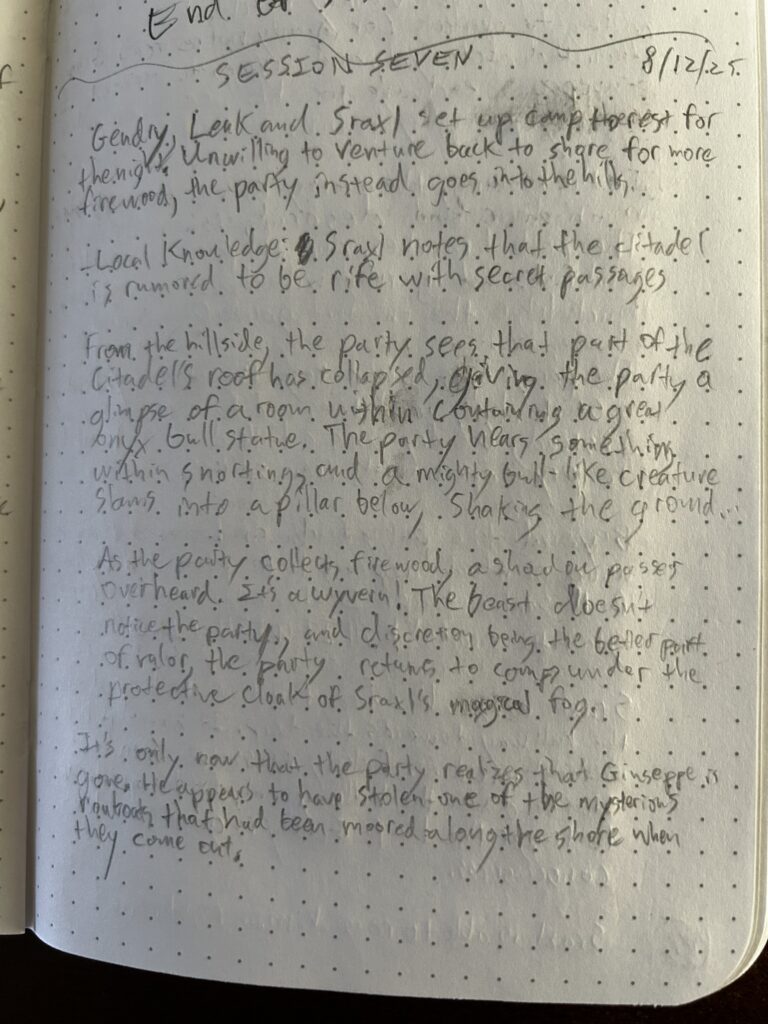 End of
SESSION SEVEN
8/12/25
Gendry, Leuk and Sraxl set up camp to rest for
the night. Unwilling to venture back to shore for more
firewood, the party instead goes into the hills.
- Local Knowledge: Sraxl notes that the citadel
is rumored to be rife with secret passages
From the hillside, the party sees that part of the
Citadel's roof has collapsed, giving the party a
glimpse of a room within containing a great
onyx bull statue. The party hears something
within snorting, and a mighty bull-like creature
slams into a pillar below, shaking the ground...
As the party collects firewood, a shadow passes
overheard. It's a wyvern! The beast doesn't
notice the party, and discretion being the better part
of valor, the party returns to camp under the
protective cloak of Sraxl's magical fog.
It's only now that the party realizes that Giuseppe is
gone. He appears to have stolen one of the mysterious
rowboats that had been moored along the shore when
they came out.